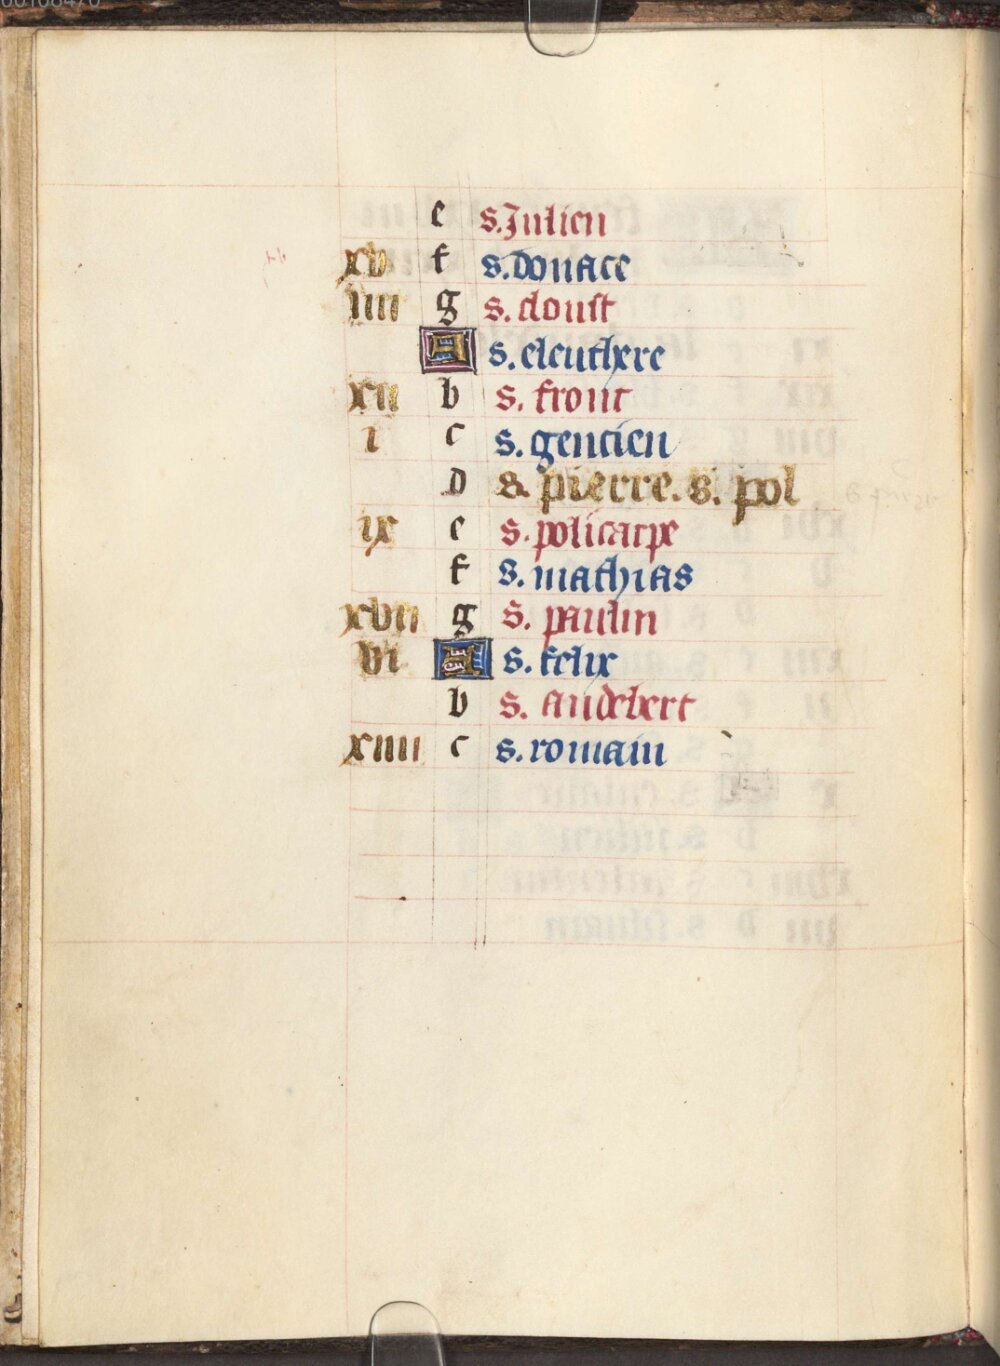 e s. Julien
xv f s. donace
iiii g s. doust
A s. eleuthere
xii b s. front
i c s. gencien
d s. pierre. s. pol
ix e s. policarpe
f s. mathias
xvii g s. paulin
vi A s. felix
b s. audebert
xiiii c s. romain